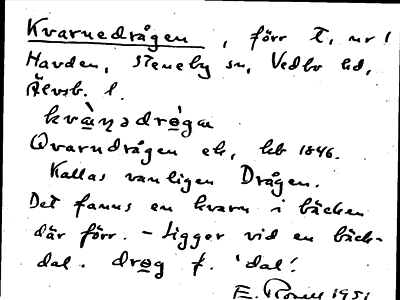 Kvarnedrågen, förr T. nr 1
Havden, Steneby sn, Vedbo hd,
Älvsb. l.
kvàṇədrǫ̀gα
Qvarndrågen ek, hb 1846.
Kallas vanligen Drågen.
Det fanns en kvarn i bäcken
där förr. – Ligger vid en bäck-
dal. drog f. 'dal'.
1951